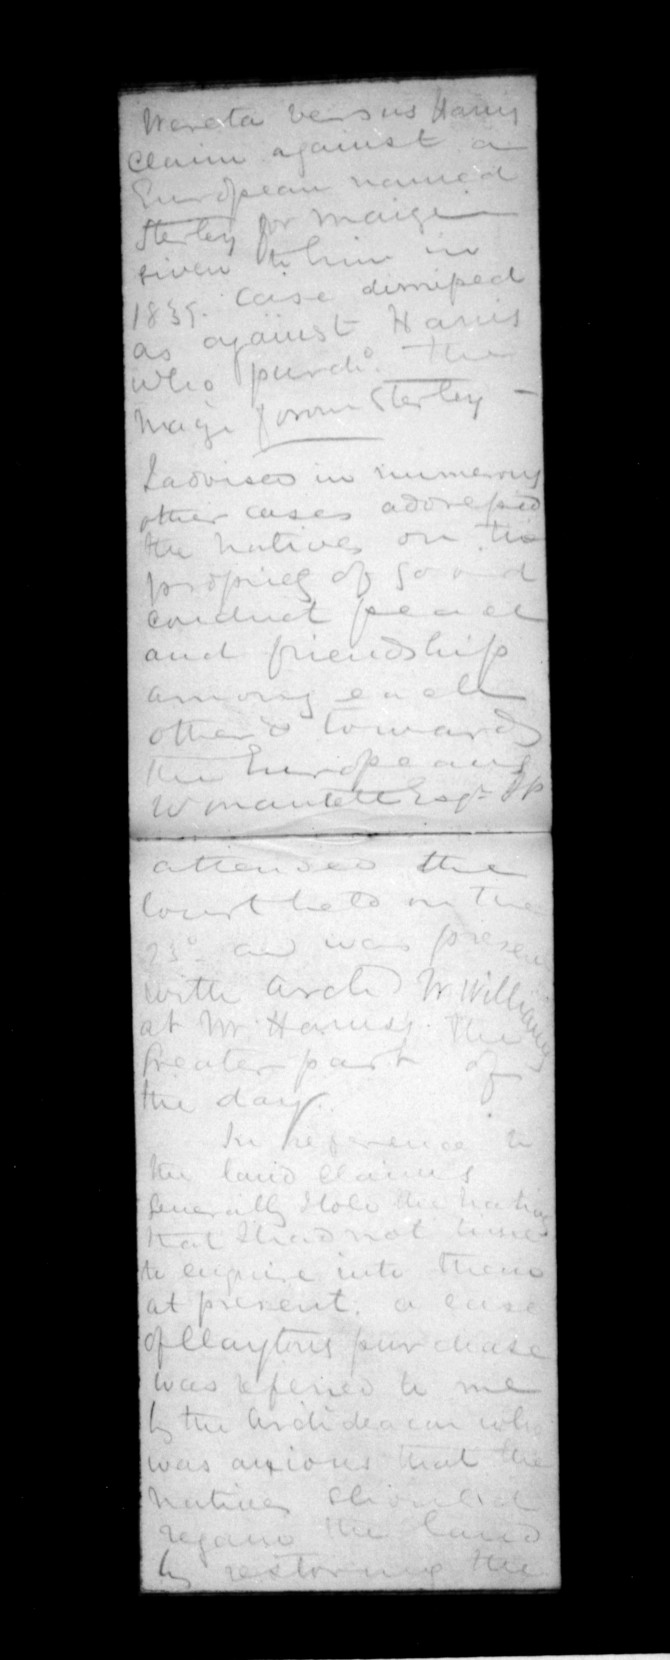 Wereta versus Harris
Claim against a
European named
Sterley for maize
given to him in
1839. Case dismissed
as against Harris
who purchd. the
maize from Sterley -
I advised in numerous
other cases addressed
the natives on the
propriety of good
conduct peace
and friendship
among each
other & towards
the Europeans
W Esqr JP
attended the
Court held on the
23d. and was present
with Archd W. Williams
at Mr. Harris's. the
Greater part of
the day.
In reference to
the land claims
Generally I told the natives
that I had not time
to enquire into them
at present. a case
of Claytons purchase
was referred to me
by the Archdeacon who
was anxious that the
natives should
regain the land
by restoring the